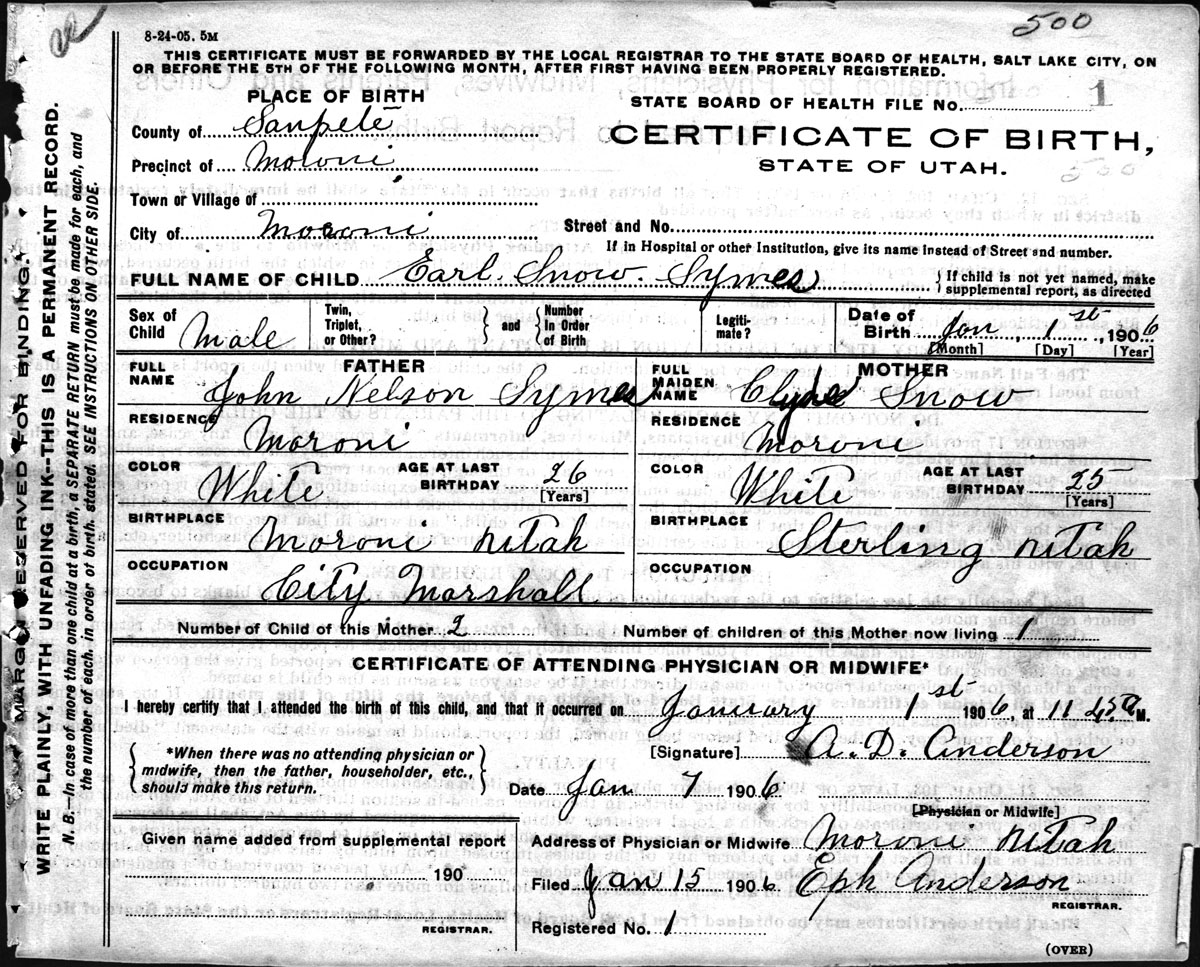 500
8-24-05. 5M
THIS CERTIFICATE MUST BE FORWARDED BY THE LOCAL REGISTRAR TO THE STATE BOARD OF HEALTH, SALT LAKE CITY, ON
OR BEFORE THE 5TH OF THE FOLLOWING MONTH, AFTER FIRST HAVING BEEN PROPERLY REGISTERED.
MARGIN RESERVED FOR BINDING
WRITE PLAINLY, WITH UNFADING INK--THIS IS A PERMANENT RECORD.
N. B.--In case of more than one child at a birth, a SEPARATE RETURN must be made for each, and
the number of each, in order of birth, stated. SEE INSTRUCTIONS ON OTHER SIDE.
PLACE OF BIRTH
STATE BOARD OF HEALTH FILE No. 1
County of Sanpete
CERTIFICATE OF BIRTH,
Precinct of Moroni
STATE OF UTAH.
500
Town or Village of
City of Moroni Street and No.
If in Hospital or other Institution, give its name instead of Street and number.
FULL NAME OF CHILD Earl Snow Symes { If child is not yet named, make
supplemental report, as directed
Sex of Child Male Twin, Triplet, or Other? } and { Number In Order of Birth Legiti-mate? Date of Birth Jan, 1st, 1906
[Month] [Day] [Year]
FATHER
FULL NAME John Nelson Symes
RESIDENCE Moroni
COLOR White AGE AT LAST BIRTHDAY 26
[Years]
BIRTHPLACE Moroni Utah
OCCUPATION City Marshall
MOTHER
FULL MAIDEN NAME Clyde Snow
RESIDENCE Moroni
COLOR White AGE AT LAST BIRTHDAY 25
[Years]
BIRTHPLACE Sterling Utah
OCCUPATION
Number of Child of this Mother 2 Number of children of this Mother now living 1
CERTIFICATE OF ATTENDING PHYSICIAN OR MIDWIFE*
I hereby certify that I attended the birth of this child, and that it occurred on January 1st 1906 at 11 45 a M.
{ *When there was no attending physician or
midwife, then the father, householder, etc.,
should make this return. }
[Signature] A. D. Anderson
Date Jan 7 1906
[Physician or Midwife]
Given name added from supplemental report
190
REGISTRAR.
Address of Physician or Midwife Moroni Utah
Filed Jan 15 1906 Eph Anderson
REGISTRAR.
Registered No. 1
(OVER)